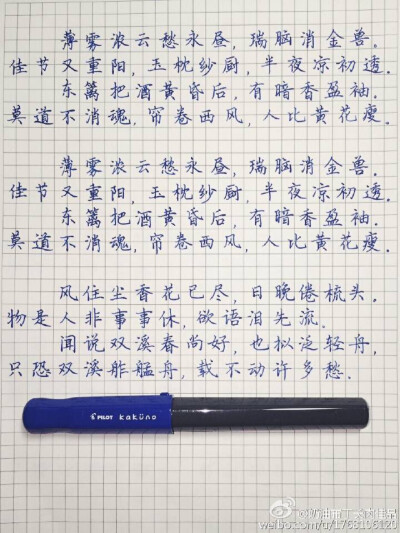 薄雾浓云愁永昼，瑞脑消金兽。
佳节又重阳，玉枕纱厨，半夜凉初透。
东篱把酒黄昏后，有暗香盈袖。
莫道不消魂，帘卷西风，人比黄花瘦。
薄雾浓云愁永昼，瑞脑消金兽。
佳节又重阳，玉枕纱厨，半夜凉初透。
东篱把酒黄昏后，有暗香盈袖。
莫道不消魂，帘卷西风，人比黄花瘦。
风住尘香花已尽，日晚倦梳头。
物是人非事事休，欲语泪先流。
闻说双溪春尚好，也拟泛轻舟，
只恐双溪舴艋舟，载不动许多愁。
PILOT kaküno
weibo.com/u/1768106120